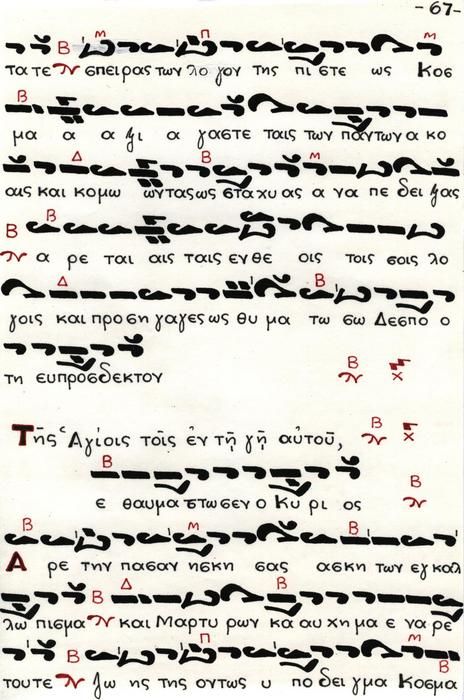 - 67 -
τα τε σπειρας των λο γον της πι στε ως Κοσ
μα α α ξι α γαστε ταις των πάντων α κο
αις και κομω ωντας ως στα χυ ας α να πε δει ξας
α ρε ται αις ταις εν θε οις τοις σοις λο
γοις και προ ση γαγες ως θυ μα τω σω Δεσπο ο
τη ευπροσδεκτον
Τῆς Ἁγίοις τοῖς ἐν τῇ γῇ αὐτοῦ,
ε θαυμα στωσεν ο Κυ ρι ος
Α ρε την πασαν ησκη σας ασκη των εγ καλ
λω πισμα και Μαρτυ ρων κα αυ χη μα ε να ρε
του τε ζω ης της οντως υ πο δει γμα Κοσμα